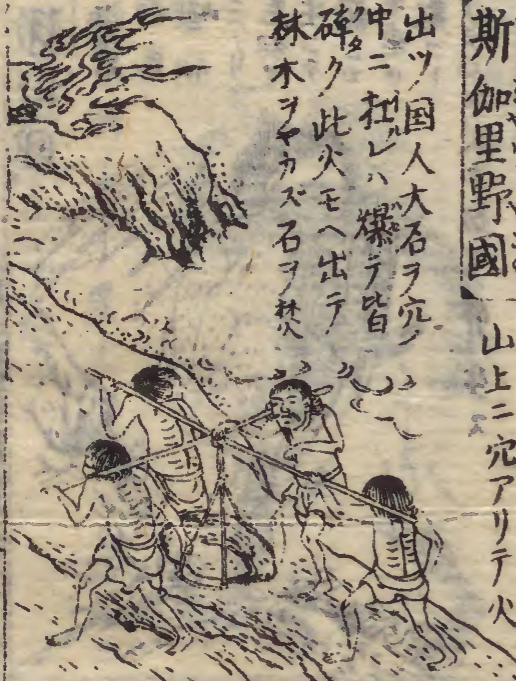 斯伽里野國
山上ニ穴アリテ火
出ツ国人大石ヲ穴ノ
中ニ扛レハ爆テ皆
碎ク此火モヘ出テ
林木ヲヤカズ石ヲ焚